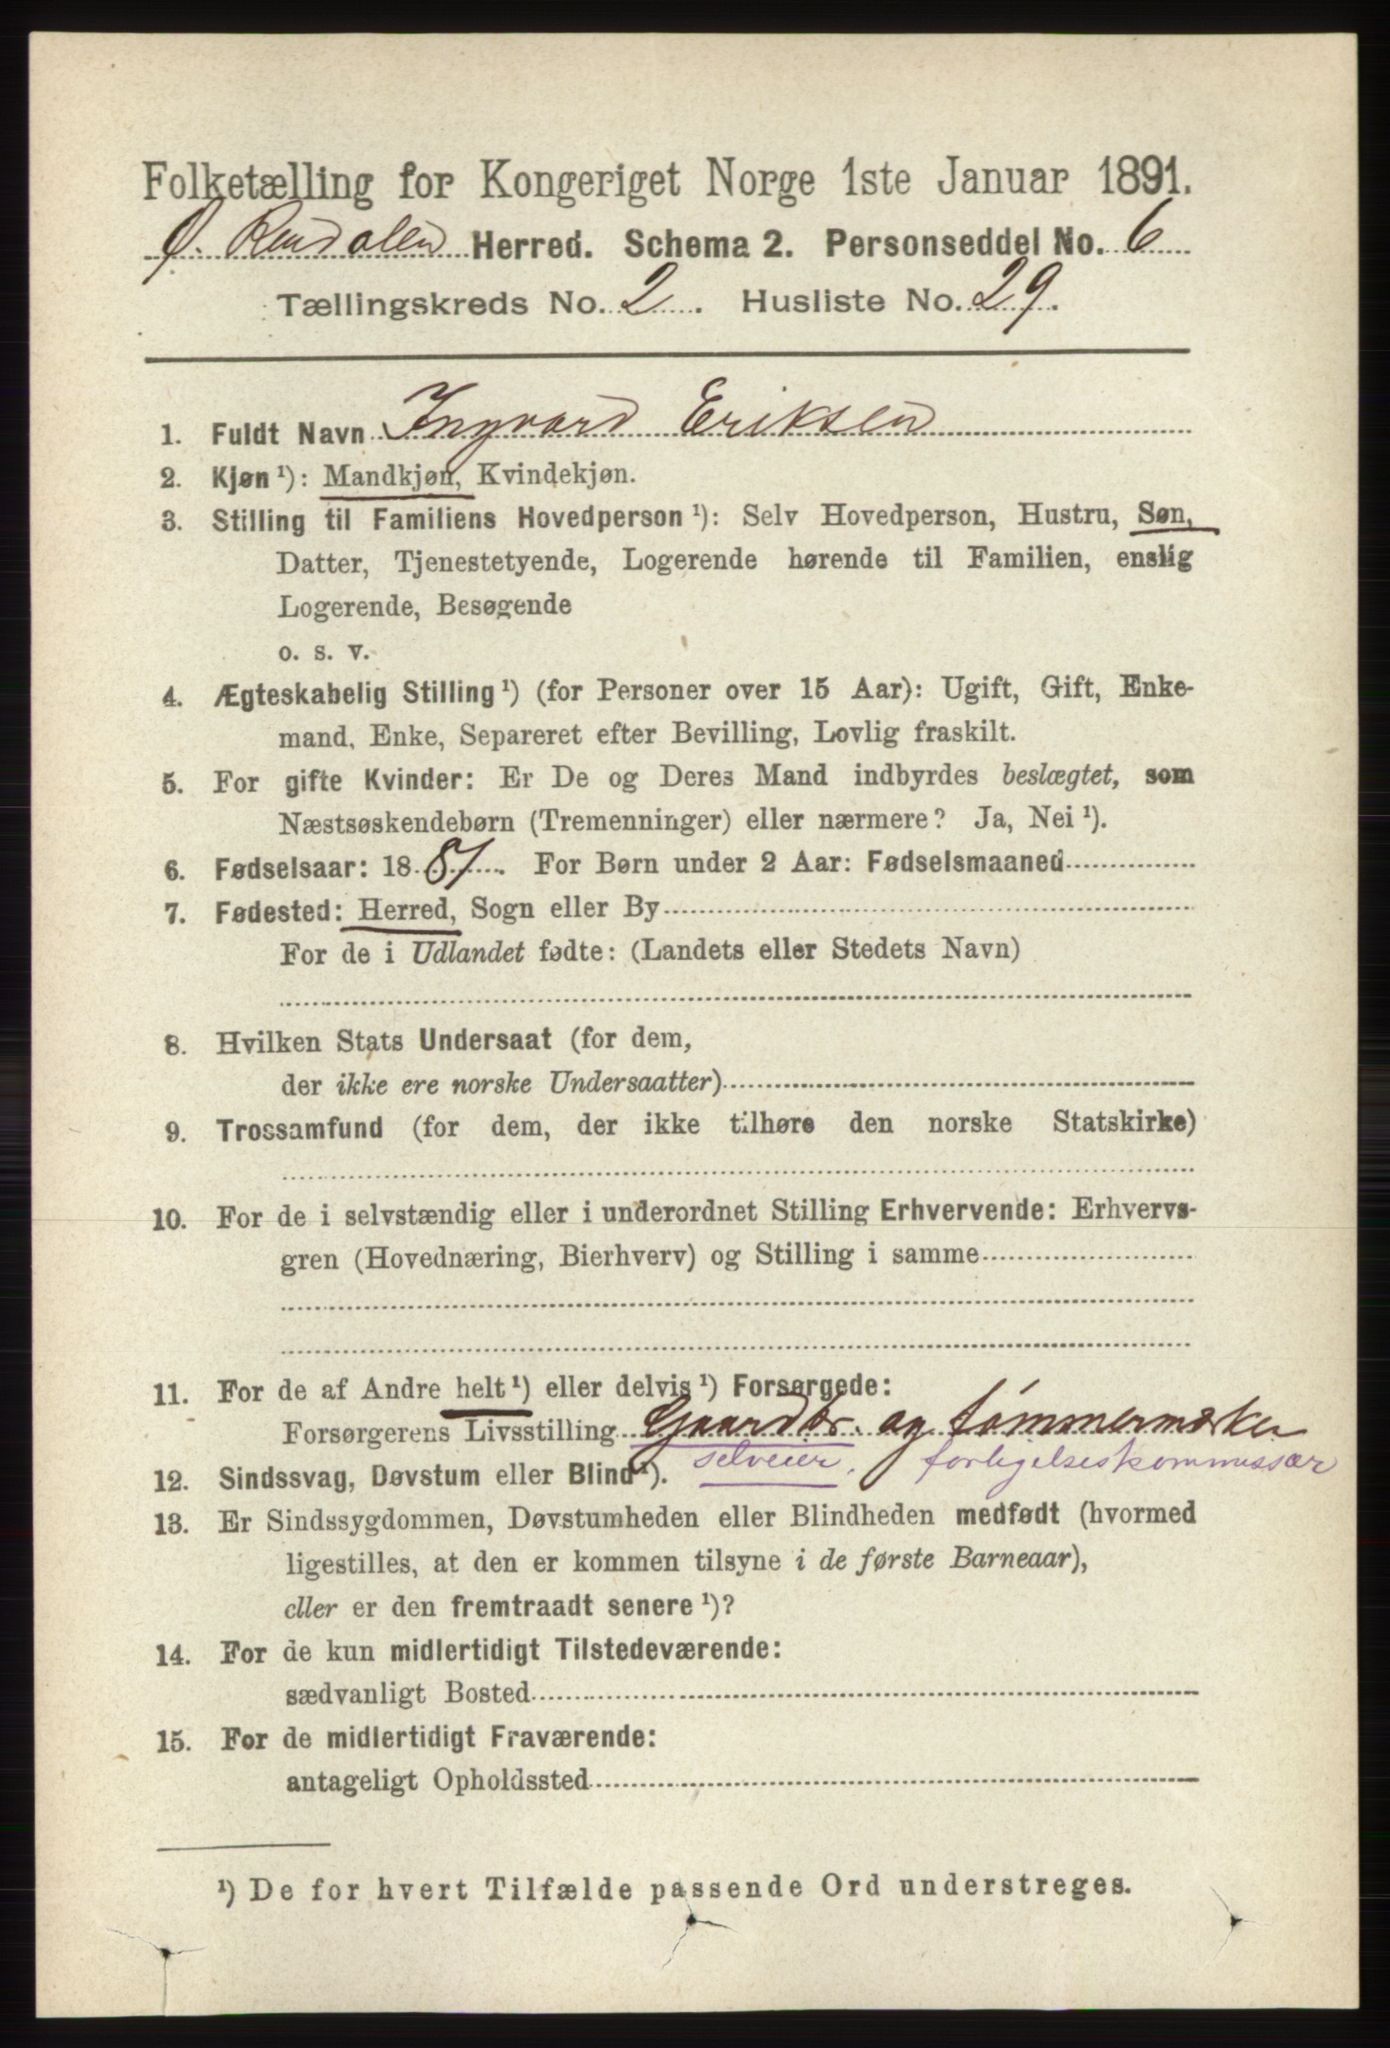 Folketælling for Kongeriget Norge 1ste Januar 1891.
Ø. Rendalen Herred. Schema 2. Personseddel No. 6
Tællingskreds No. 2. Husliste No. 29.
1. Fuldt Navn Ingvard Eriksen
2. Kjøn ¹): Mandkjøn, Kvindekjøn.
3. Stilling til Familiens Hovedperson ¹): Selv Hovedperson, Hustru, Søn,
Datter, Tjenestetyende, Logerende hørende til Familien, enslig
Logerende, Besøgende
o. s. v.
4. Ægteskabelig Stilling ¹) (for Personer over 15 Aar): Ugift, Gift, Enke-
mand, Enke, Separeret efter Bevilling, Lovlig fraskilt.
5. For gifte Kvinder: Er De og Deres Mand indbyrdes beslægtet, som
Næstsøskendebørn (Tremenninger) eller nærmere? Ja, Nei ¹).
6. Fødselsaar: 1881. For Børn under 2 Aar: Fødselsmaaned
7. Fødested: Herred, Sogn eller By
For de i Udlandet fødte: (Landets eller Stedets Navn)
8. Hvilken Stats Undersaat (for dem,
der ikke ere norske Undersaatter)
9. Trossamfund (for dem, der ikke tilhøre den norske Statskirke)
10. For de i selvstændig eller i underordnet Stilling Erhvervende: Erhvervs-
gren (Hovednæring, Bierhverv) og Stilling i samme
11. For de af Andre helt ¹) eller delvis ¹) Forsørgede:
Forsørgerens Livsstilling Gaardbr. og tømmermærker
selveier, forligelseskommissær
12. Sindssvag, Døvstum eller Blind ¹).
13. Er Sindssygdommen, Døvstumheden eller Blindheden medfødt (hvormed
ligestilles, at den er kommen tilsyne i de første Barneaar),
eller er den fremtraadt senere ¹)?
14. For de kun midlertidigt Tilstedeværende:
sædvanligt Bosted
15. For de midlertidigt Fraværende:
antageligt Opholdssted
¹) De for hvert Tilfælde passende Ord understreges.